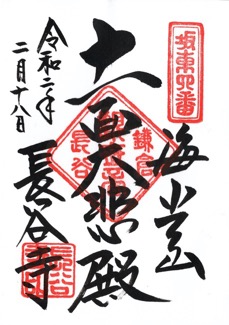 坂東四番
海光山
十一面大悲殿
鎌倉
長谷
令和二年
二月十八日
長谷寺